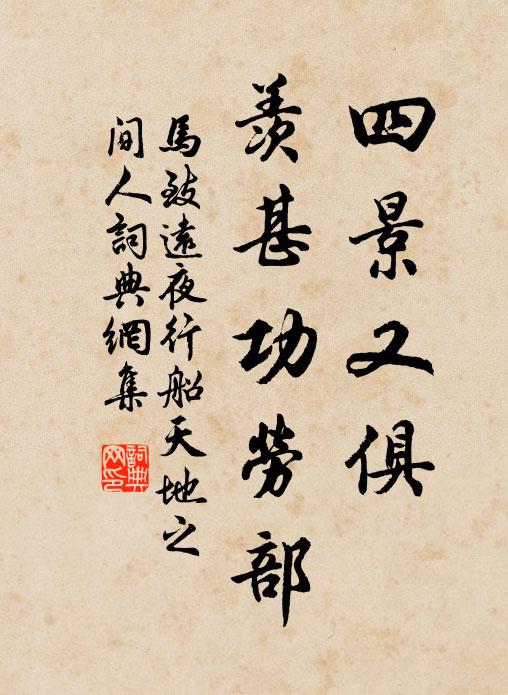 四景又俱
羨甚功勞部
馬致遠夜行船天地之
間人詞典網集
詞典
网印